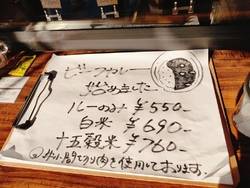 ビーフカレー
始めました
ルーのみ ¥550-
白米 ¥690-
十五穀米 ¥760-
肉を使用しております。